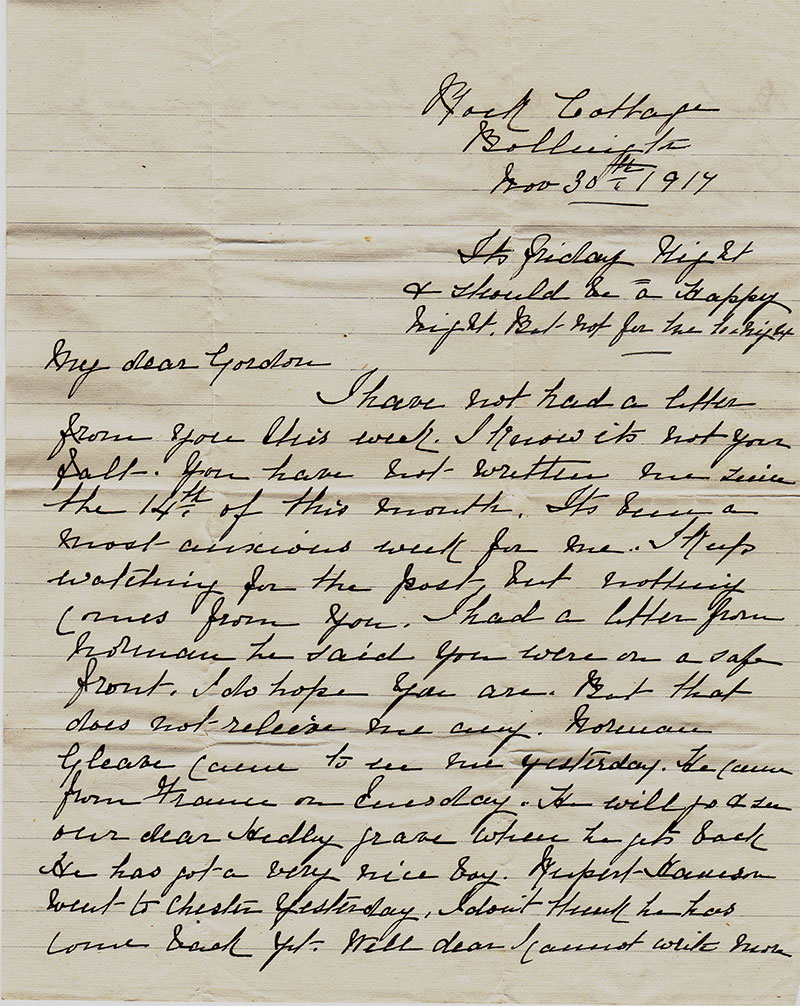 Rock Cottage
Bollington
Nov 30th 1917
Its friday Night
& should be a Happy
Night. But not for me to-night
My dear Gordon
I have not had a letter
from you this week. I know its not your
falt. You have not written me since
the 14th of this month. Its been a
most anxious week for me. I keep
watching for the post, but nothing
comes from you. I had a letter from
Norman he said you were on a safe
front. I do hope you are. But that
does not releive me any. Norman
Gleave came to see me yesterday. He came
from France on Tuesday. He will go & see
our dear Hedley grave when he gets back
He has got a very nice boy. Rupert
went to Chester yesterday, I don't think he has
come back yt. Well dear I cannot write more